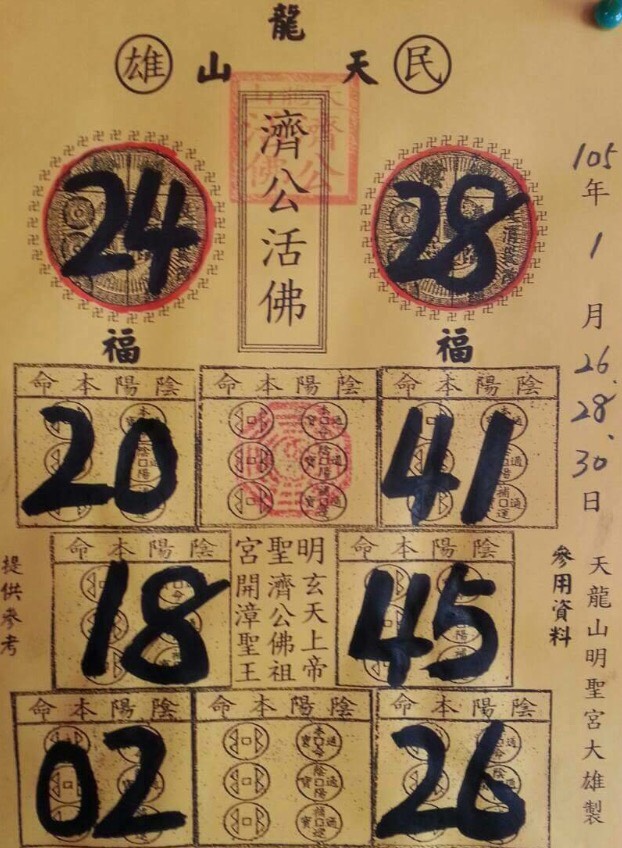 龍
雄 山 天 民
濟公活佛
24 28
福 福
105年1月26.28.30日
命本陽陰 命本陽陰 命本陽陰
20 41
命本陽陰 命本陽陰
18 45
明玄天上帝
聖濟公佛祖
宮開漳聖王
提供參考
參用資料
天龍山明聖宮大雄製
命本陽陰 命本陽陰 命本陽陰
02 26